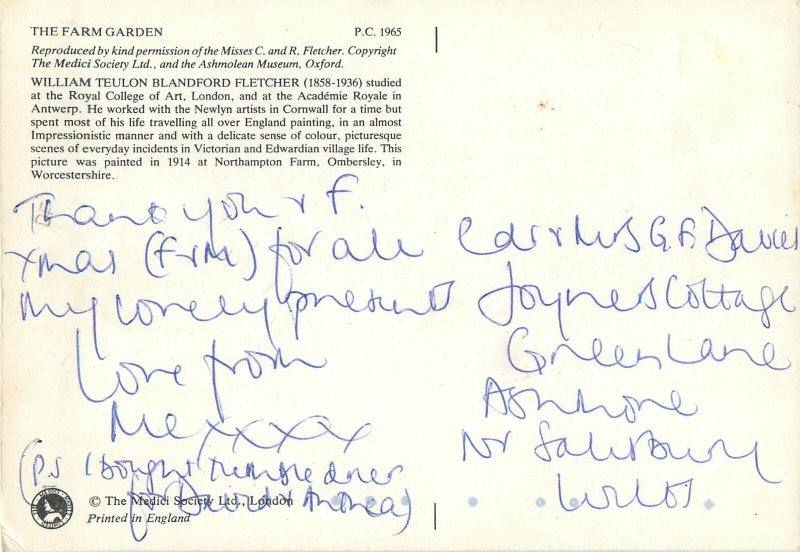 THE FARM GARDEN P.C. 1965
Reproduced by kind permission of the Misses C. and R. Fletcher. Copyright
The Medici Society Ltd., and the Ashmolean Museum, Oxford.
WILLIAM TEULON BLANDFORD FLETCHER (1858-1936) studied
at the Royal College of Art, London, and at the Académie Royale in
Antwerp. He worked with the Newlyn artists in Cornwall for a time but
spent most of his life travelling all over England painting, in an almost
Impressionistic manner and with a delicate sense of colour, picturesque
scenes of everyday incidents in Victorian and Edwardian village life. This
picture was painted in 1914 at Northampton Farm, Ombersley, in
Worcestershire.
Thank you & F.
Xmas (F&M) for all
my lovely presents
Love from
Me xxxx
(PS I bought tumble drier
for David & Andrea)
© The Medici Society Ltd., London
Printed in England
& Mrs G.F. Davies
Joyners Cottage
Green Lane
Ashmore
Nr Salisbury
Wilts.